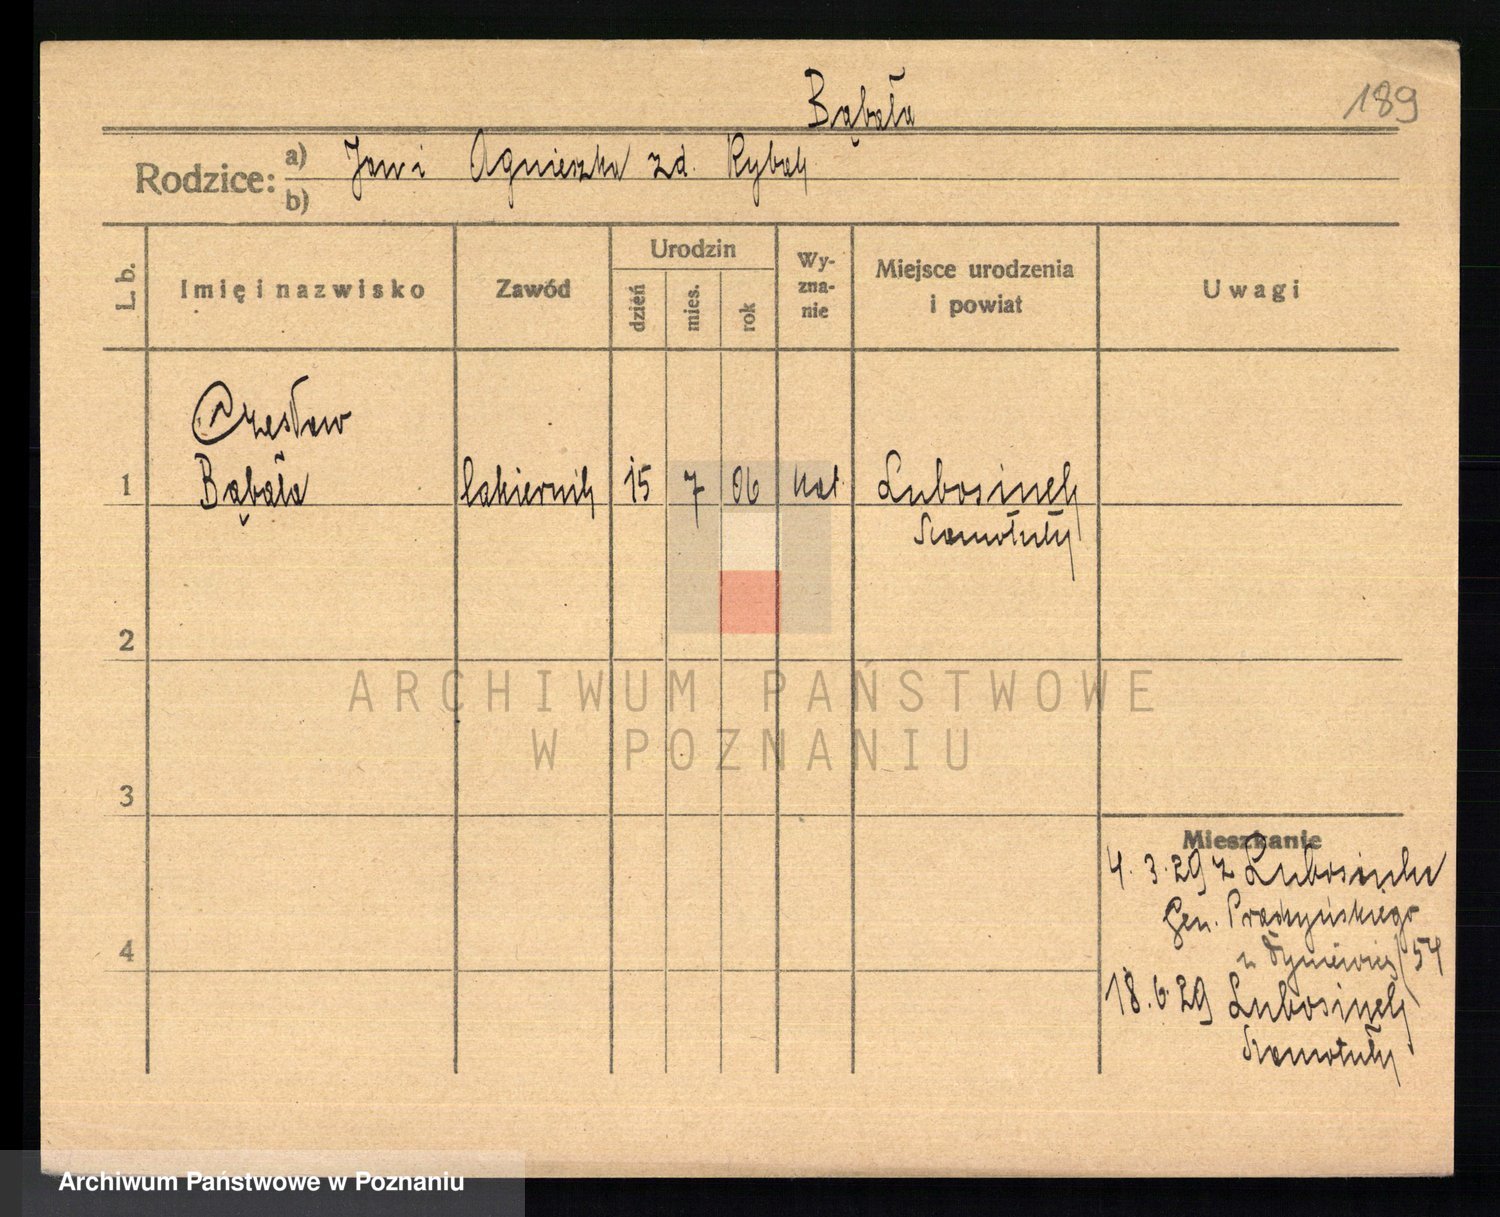 Bąbała
189
Rodzice: a) Jan i Agnieszka zd. Rybak
b)
L. b.
Imię i nazwisko
Zawód
Urodzin
dzień
mies.
rok
Wy-
zna-
nie
Miejsce urodzenia
i powiat
Uwagi
Czesław
1 Bąbała lakiernik 15 7 06 kat. Lubosinek
Szamotuły
2
ARCHIWUM PAŃSTWOWE
W POZNANIU
3
Mieszkanie
4.3.29 z Lubosinka
Gen. Prądzyńskiego
54
4
18.6.29 Lubosinek
Szamotuły
Archiwum Państwowe w Poznaniu